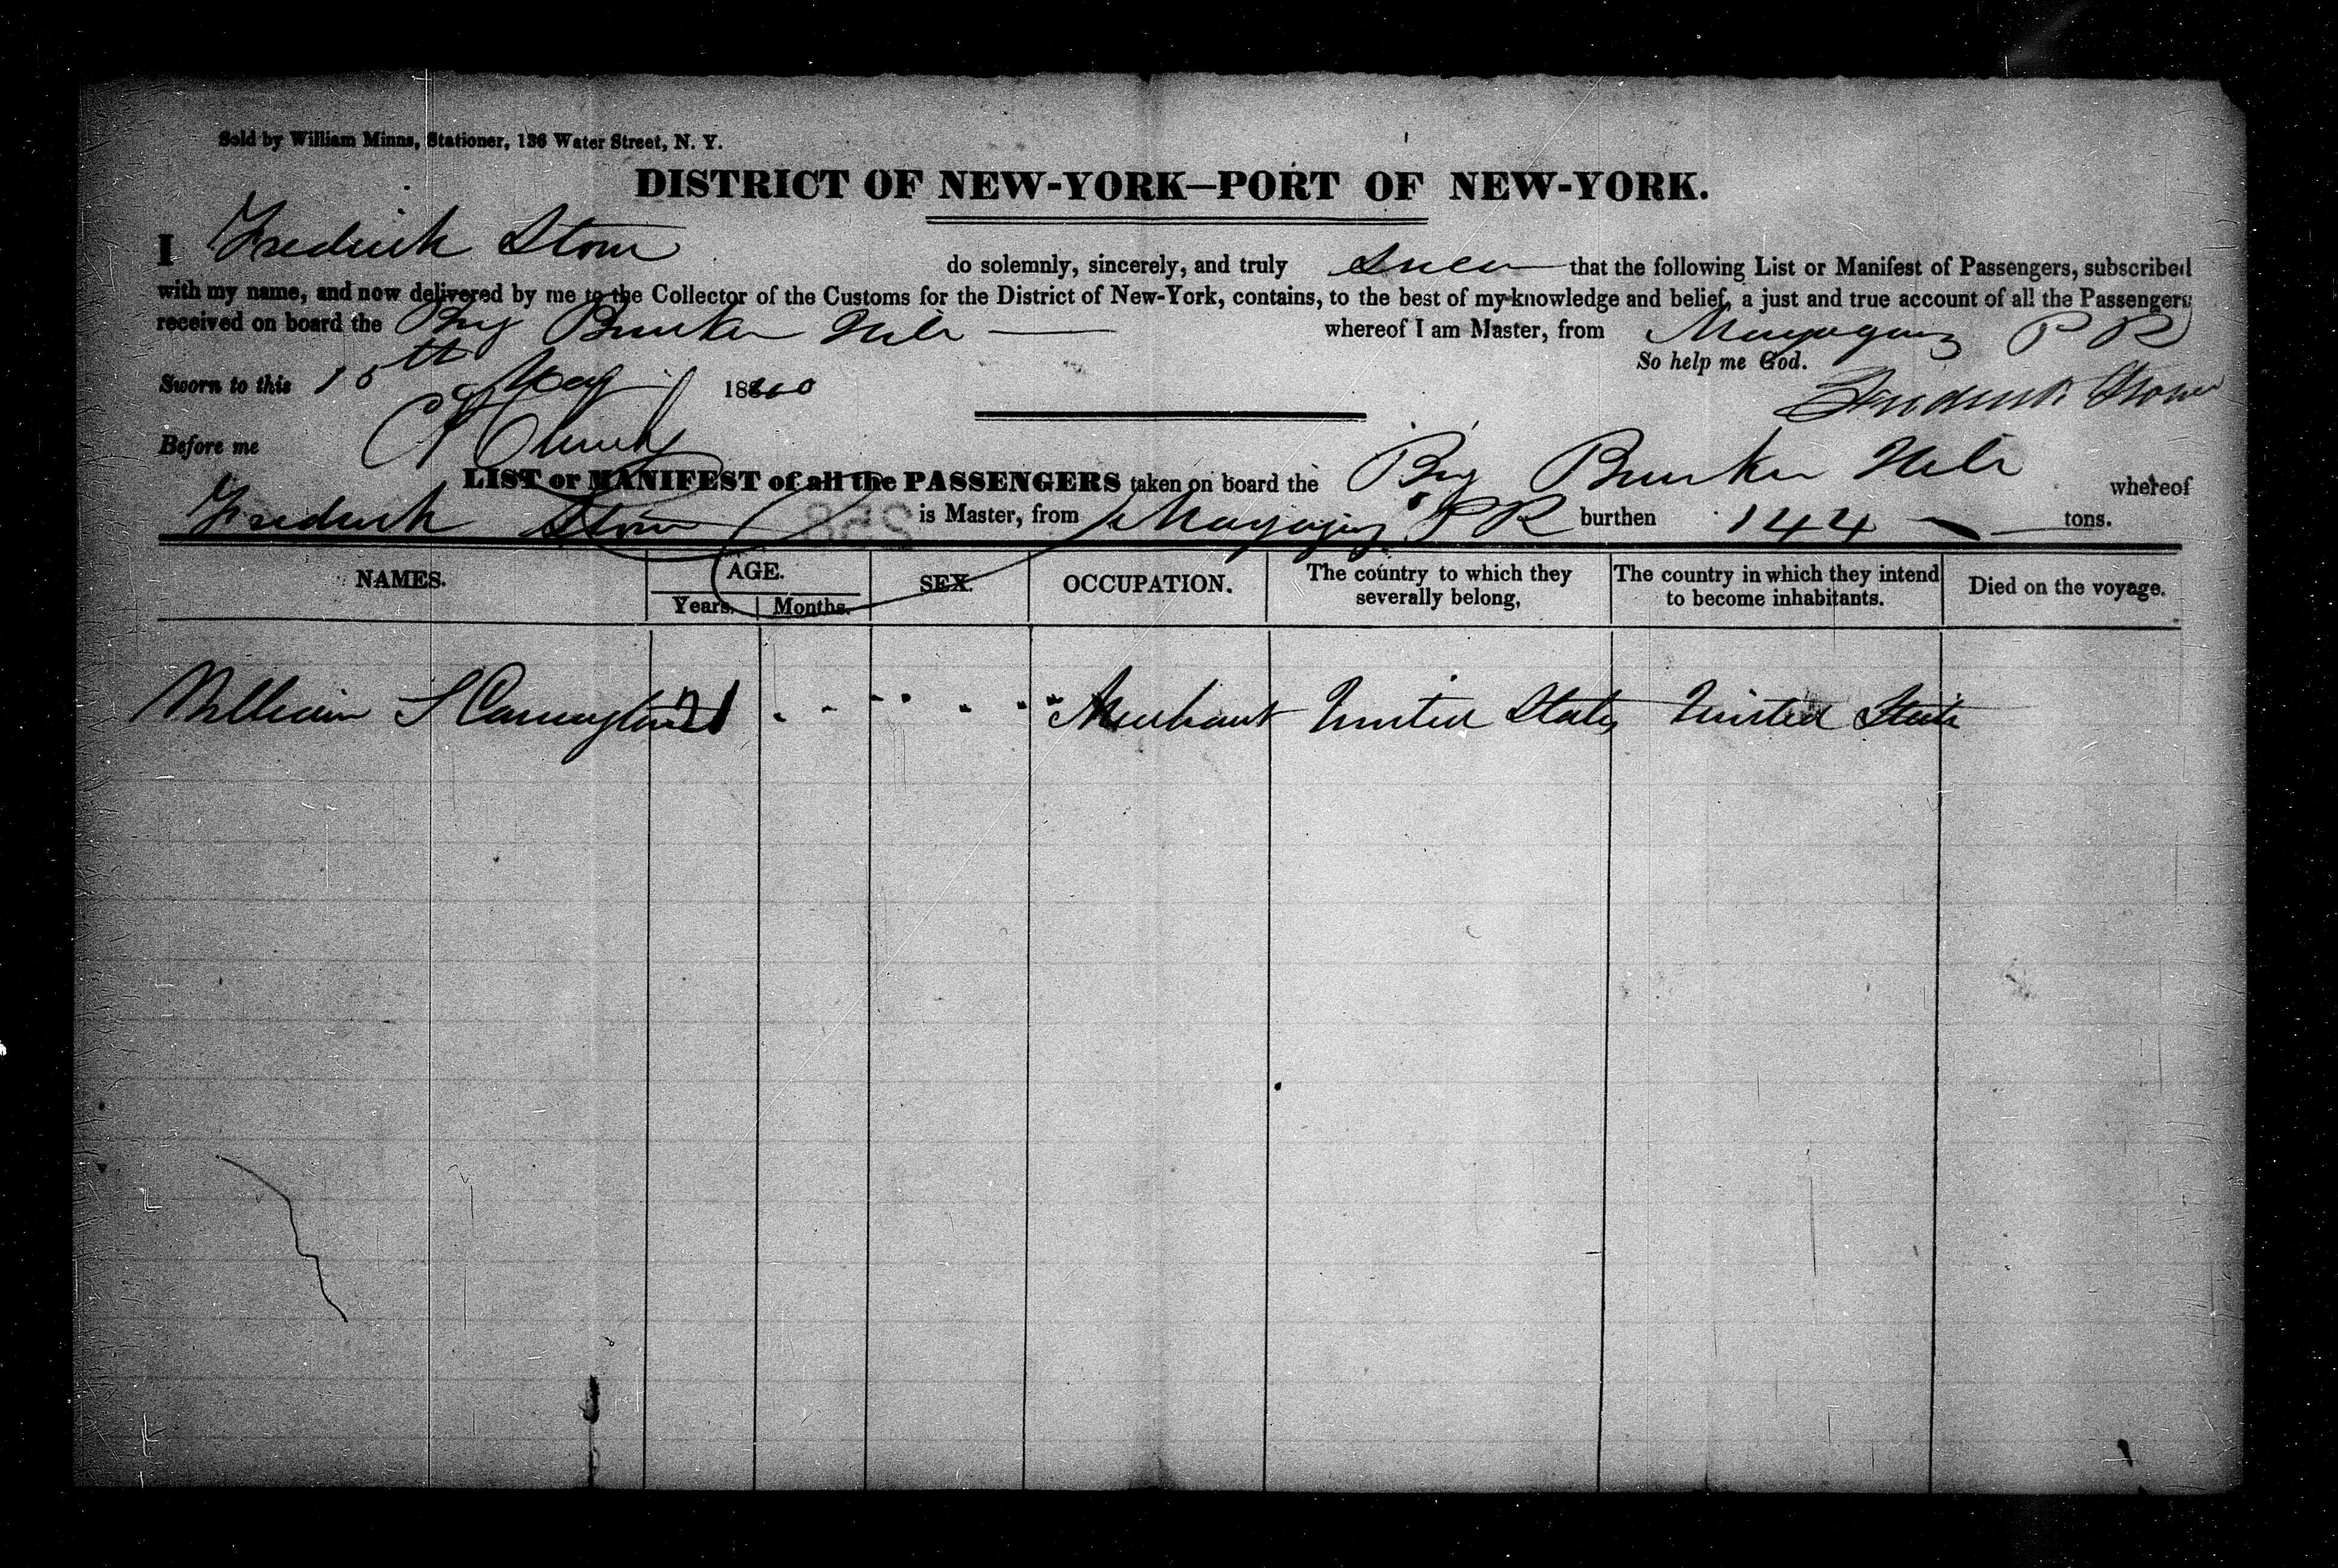 Sold by William Minns, Stationer, 136 Water Street, N. Y.
DISTRICT OF NEW-YORK—PORT OF NEW-YORK.
I Frederick Stone do solemnly, sincerely, and truly Swear that the following List or Manifest of Passengers, subscribed
with my name, and now delivered by me to the Collector of the Customs for the District of New-York, contains, to the best of my knowledge and belief, a just and true account of all the Passengers
received on board the Brig Bunker Hill whereof I am Master, from Mayaguez P R
So help me God.
Sworn to this 15th May 1840
Frederick Stone
Before me
LIST or MANIFEST of all the PASSENGERS taken on board the Brig Bunker Hill whereof
Frederick Stone is Master, from Mayaguez P R burthen 144 tons.
NAMES. AGE. SEX. OCCUPATION. The country to which they severally belong, The country in which they intend to become inhabitants. Died on the voyage.
Years. Months.
William S 21 Merchant United States United States